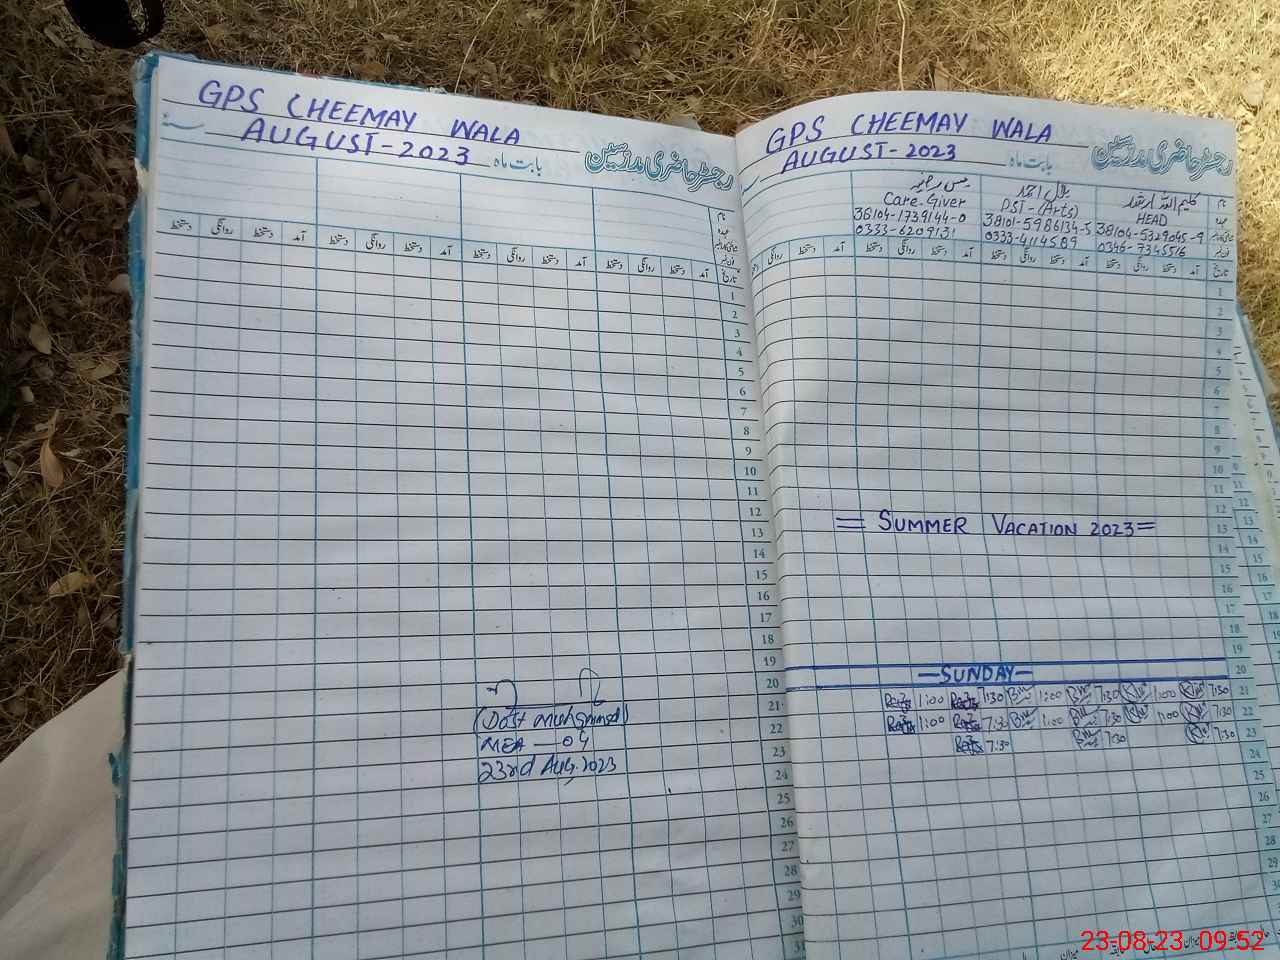 GPS CHEEMAY WALA
AUGUST-2023 بابت ماہ
رجسٹر حاضری مدرسین
دستخط روانگی دستخط آمد دستخط روانگی دستخط آمد دستخط روانگی دستخط آمد دستخط روانگی دستخط آمد تاریخ
1
2
3
4
5
6
7
8
9
10
11
12
13
14
15
16
17
18
19
20
21
22
23
24
25
26
27
28
29
30
31
(Dost muhammad)
MEA — 04
23rd Aug. 2023
GPS CHEEMAY WALA
AUGUST-2023 بابت ماہ
رجسٹر حاضری مدرسین
کلیم اللہ ارشد
HEAD
38104-5329045-9
0346-7345516
بلال احمد
PST-(Arts)
38101-5986134-5
0333-4114589
مس رضیہ
Care-Giver
36104-1739144-0
0333-6209131
روانگی دستخط آمد دستخط روانگی دستخط آمد دستخط روانگی دستخط آمد تاریخ
1
2
3
4
5
6
7
8
9
10
11
12
= SUMMER VACATION 2023 =
13
14
15
16
17
18
19
—SUNDAY— 20
1:00 7:30 1:00 7:30 1:00 7:30 21
1:00 7:30 1:00 7:30 1:00 7:30 22
7:30 7:30 7:30 23
24
25
26
27
28
29
30
23-08-23 09:52